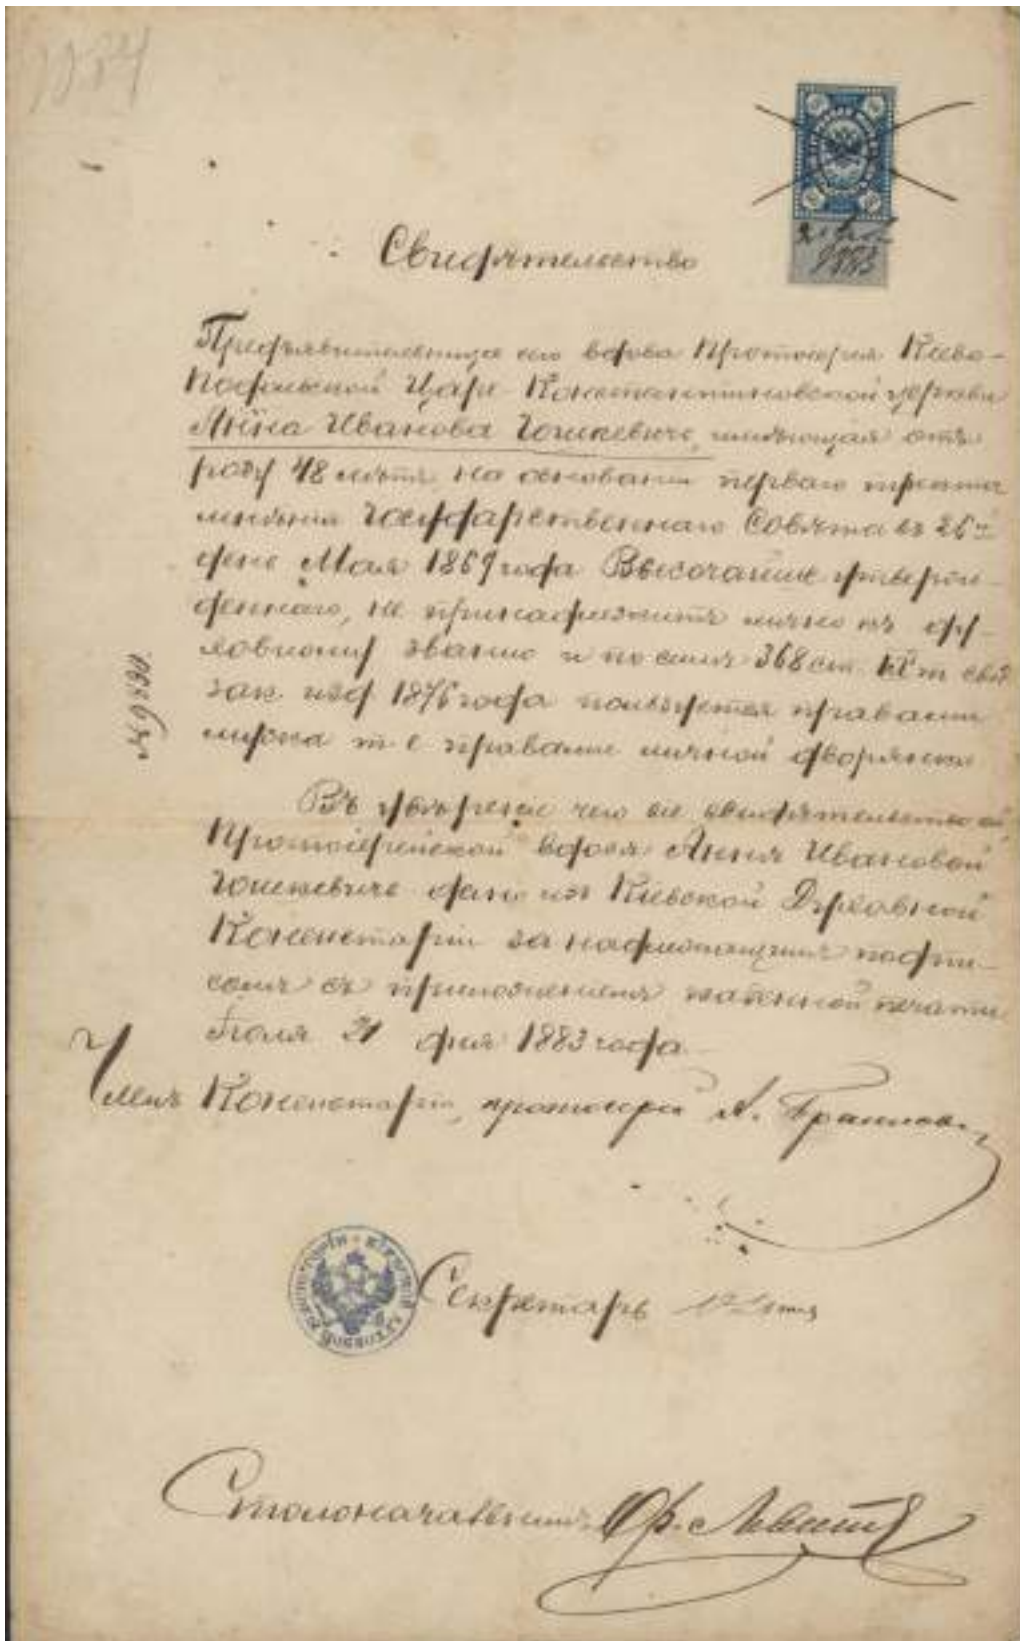 Свидѣтельство
Предъявительница сего вдова Протоіерея Кіево-
Подольской Царе-Константиновской церкви
Анна Иванова Гошкевичъ, имѣющая отъ
роду 48 лѣтъ на основаніи перваго пункта
мнѣнія Государственнаго Совѣта въ 26й
день Мая 1869 года Высочайше утверж-
деннаго, не принадлежитъ лично къ ду-
ховному званію и по силѣ 368 ст. IX т свод
зак. изд 1876 года пользуется правами
мужа т. е правами личной дворянки
Въ увѣреніе чего сіе свидѣтельство ей,
Протоіерейской вдовѣ Аннѣ Ивановой
Гошкевичъ дано изъ Кіевской Духовной
Консисторіи за надлежащимъ подпи-
сомъ съ приложеніемъ казенной печати
Іюля 21 дня 1883 года.
Членъ Консисторіи, протоіерей А.
Секретарь
Столоначальникъ
1883